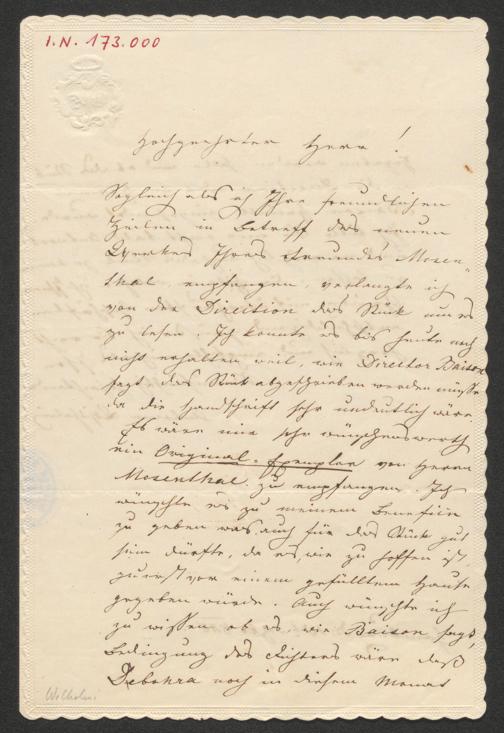 I.N. 173.000
Hochgeehrter Herr!
Sogleich als ich Ihre freundlichen
Zeilen in Betreff des neuen
Werkes Ihres Freundes Mosen-
thal, empfangen, verlangte ich
von der Direction das Stück um es
zu lesen. Ich konnte es bis heute noch
nicht erhalten weil, wie Director Baison
sagt das Stück abgeschrieben werden müsse
da die Handschrift sehr undeutlich wäre.
Es wäre mir sehr wünschenswerth
ein Original-Exemplar von Herrn
Mosenthal zu empfangen. Ich
wünschte es zu meinem Benefiz
zu geben was auch für das Stück gut
sein dürfte, da es, wie zu hoffen ist,
zuerst vor einem gefülltem Hause
gegeben würde. Auch wünschte ich
zu wissen ob es, wie Baison sagt,
Bedingung des Dichters wäre daß
Debohra noch in diesem Monat
Wilhelmi